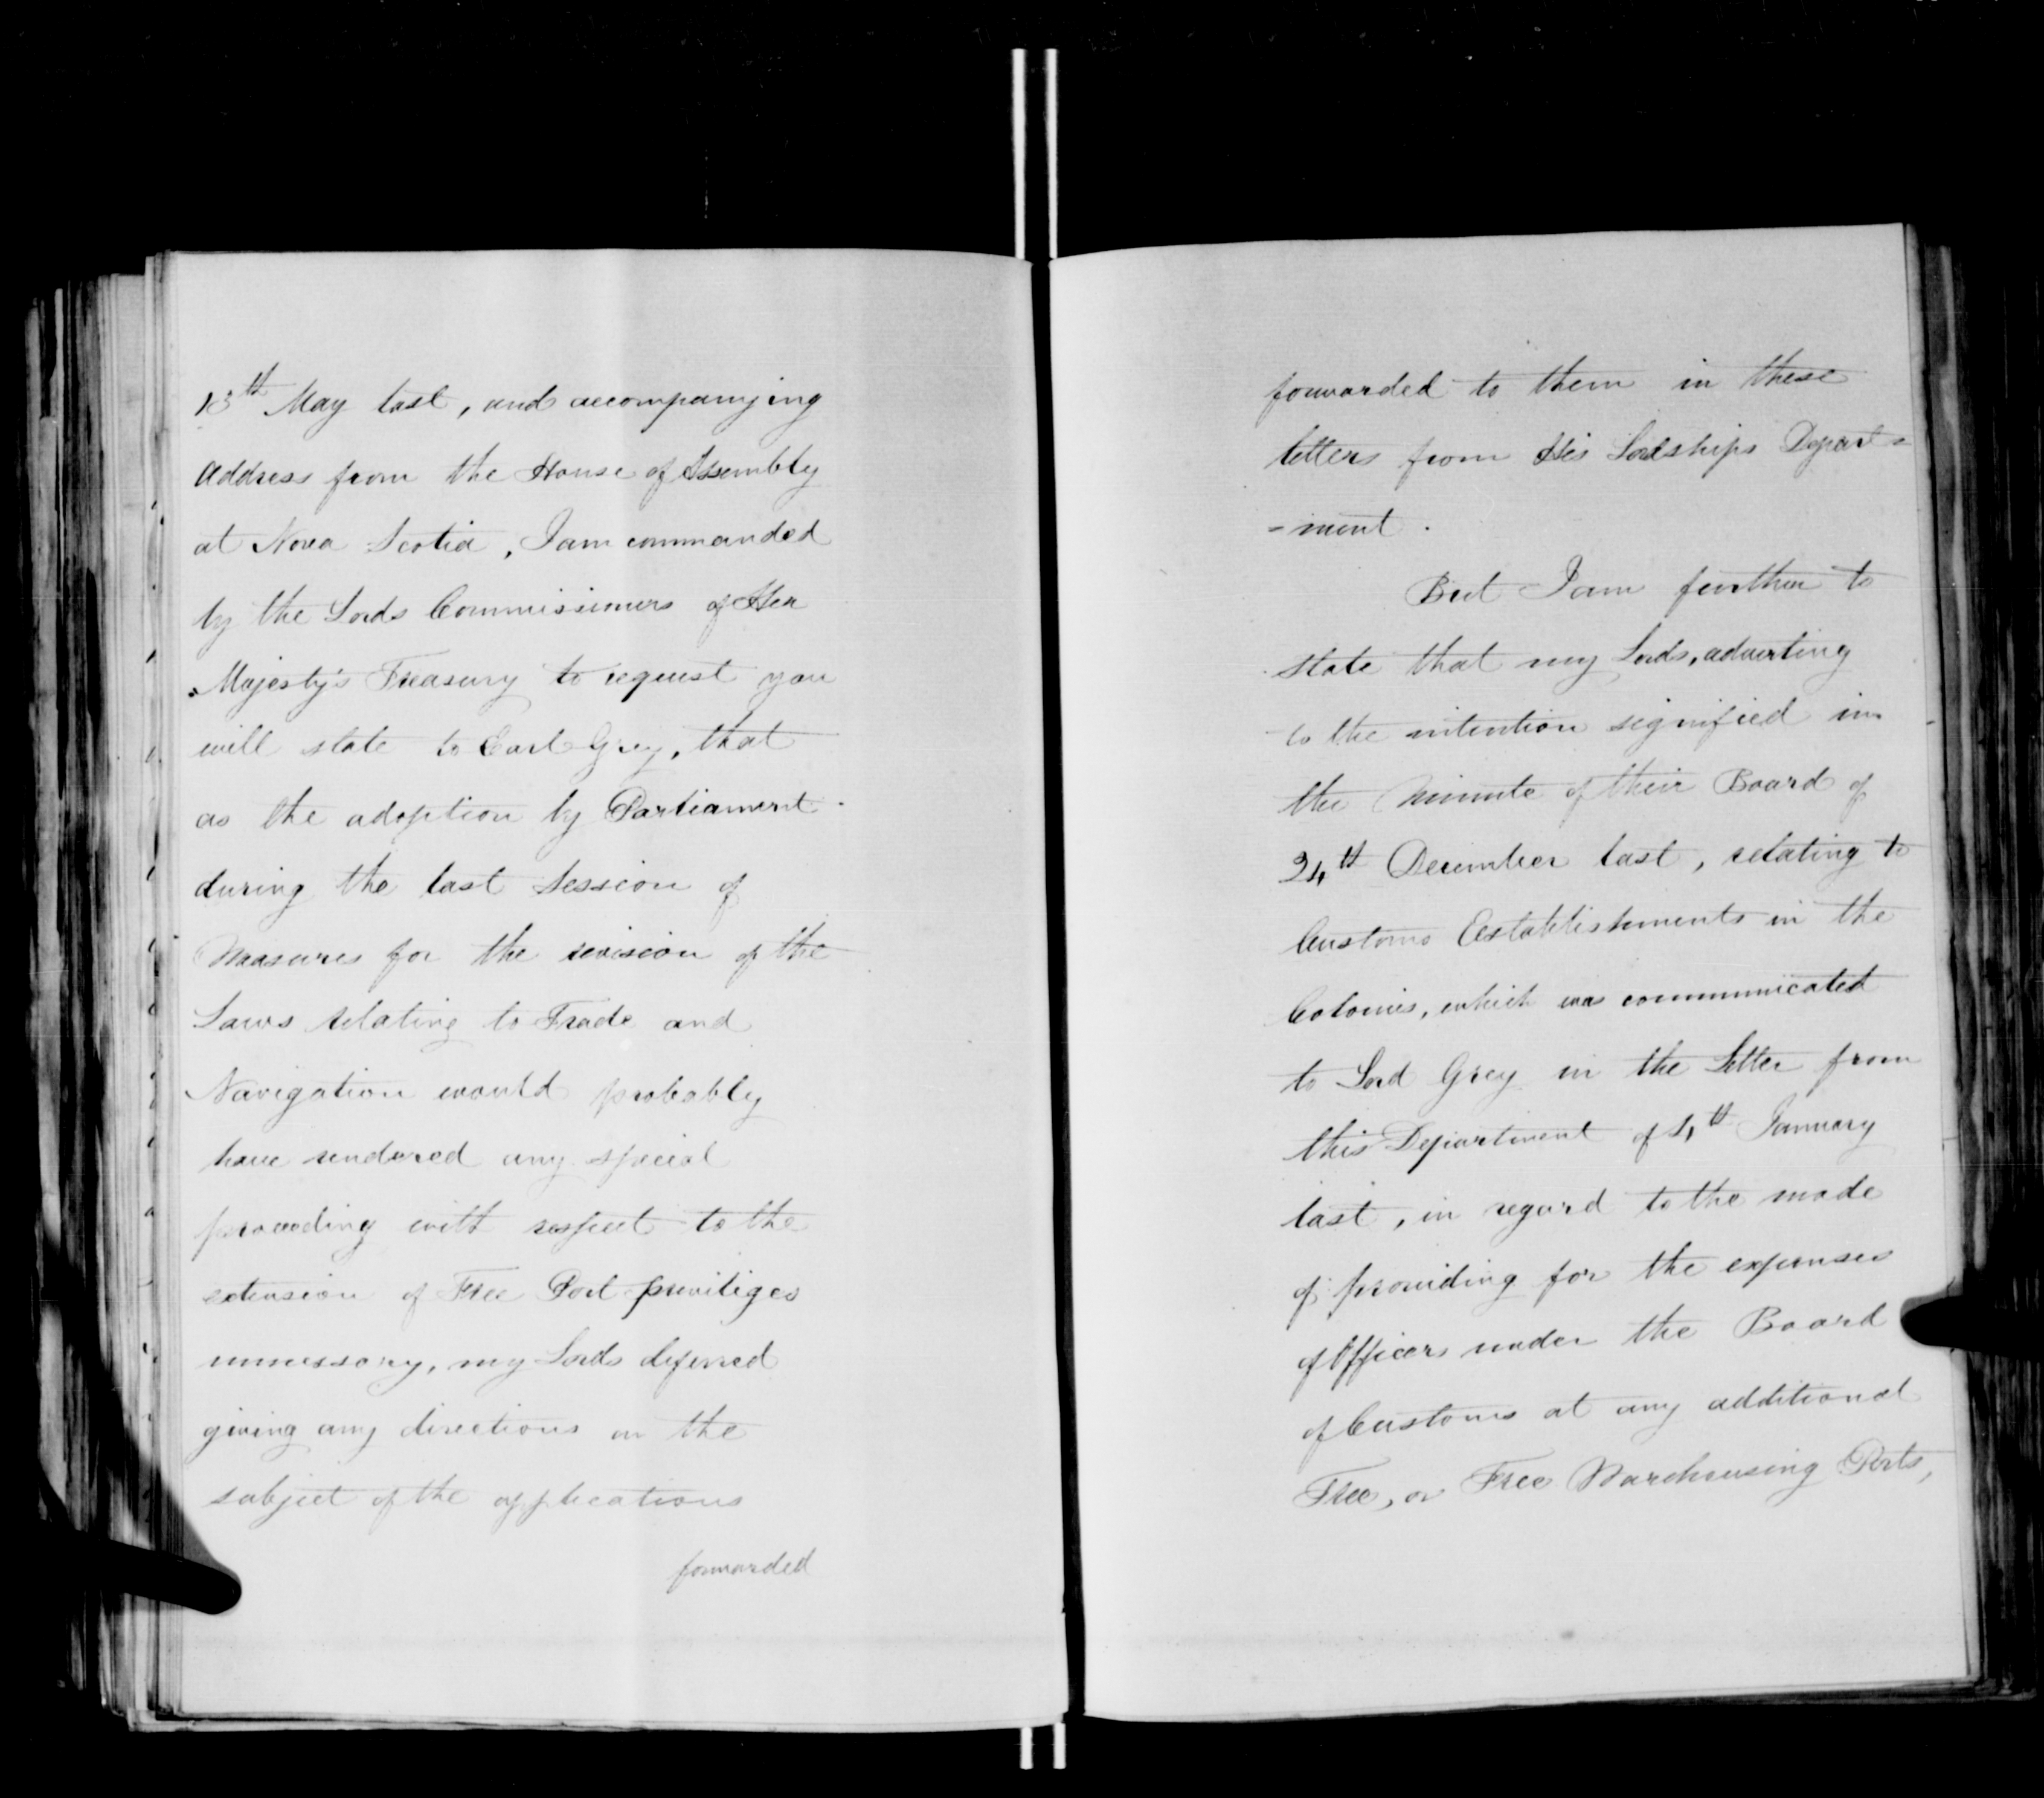 13th May last, and accompanying
Address from the House of Assembly
at Nova Scotia, I am commanded
by the Lords Commissioners of Her
Majesty's Treasury to request you
will state to Earl Grey, that
as the adoption by Parliament
during the last Session of
Measures for the revision of the
Laws relating to Trade and
Navigation would probably
have rendered any special
proceeding with respect to the
extension of Free Port privileges
unnecessary, my Lords deferred
giving any directions on the
subject of the applications
forwarded
forwarded to them in these
letters from His Lordships Depart=
=ment.
But I am further to
state that my Lords, adverting
to the intention signified in
the Minute of their Board of
24th December last, relating to
Customs Establishments in the
Colonies, which was communicated
to Lord Grey in the Letter from
this Department of 4th January
last, in regard to the mode
of providing for the expenses
of Officers under the Board
of Customs at any additional
Free, or Free Warehousing Ports,